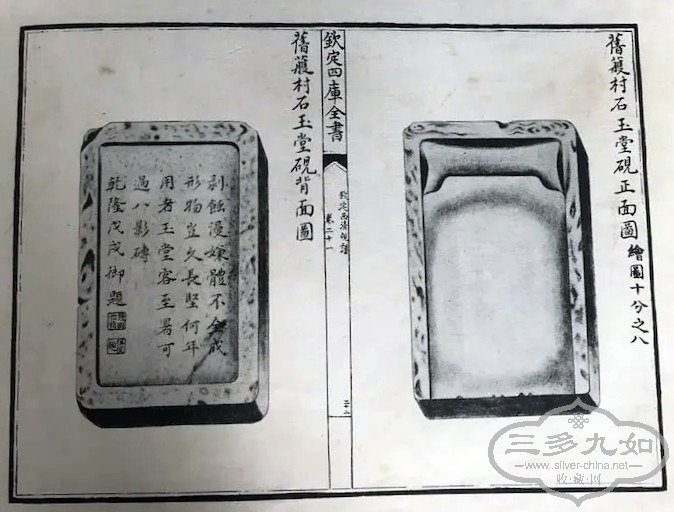 舊蘉村石玉堂硯正面圖 繪圖十分之八
欽定四庫全書
欽定西清硯譜
卷二十一
舊蘉村石玉堂硯背面圖
剥蝕漫嫌體不全成
形物豈久長堅何年
用者玉堂客至署可
過八影磚
乾隆戊戌御題
三多九如
www.silver-china.net
收·藏·网